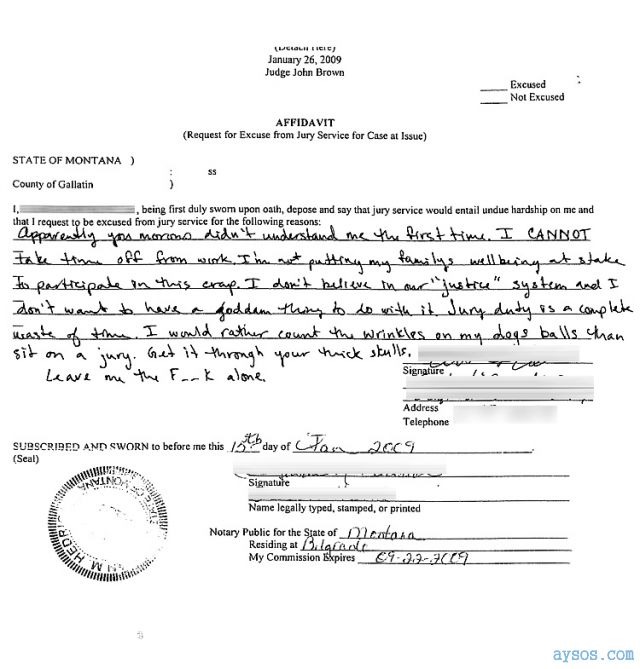 (Detach Here)
January 26, 2009
Judge John Brown
Excused
Not Excused
AFFIDAVIT
(Request for Excuse from Jury Service for Case at Issue)
STATE OF MONTANA )
: ss
County of Gallatin )
I, , being first duly sworn upon oath, depose and say that jury service would entail undue hardship on me and
that I request to be excused from jury service for the following reasons:
Apparently you morons didn't understand me the first time. I CANNOT
take time off from work. I'm not putting my familys wellbeing at stake
to participate in this crap. I don't believe in our "justice" system and I
don't want to have a goddam thing to do with it. Jury duty is a complete
waste of time. I would rather count the wrinkles on my dogs balls than
sit on a jury. Get it through your thick skulls.
Leave me the F__k alone.
Signature
Address
Telephone
SUBSCRIBED AND SWORN to before me this 15th day of Jan 2009
(Seal)
Signature
Name legally typed, stamped, or printed
Notary Public for the State of Montana
Residing at Belgrade
My Commission Expires 09-22-2009
aysos.com